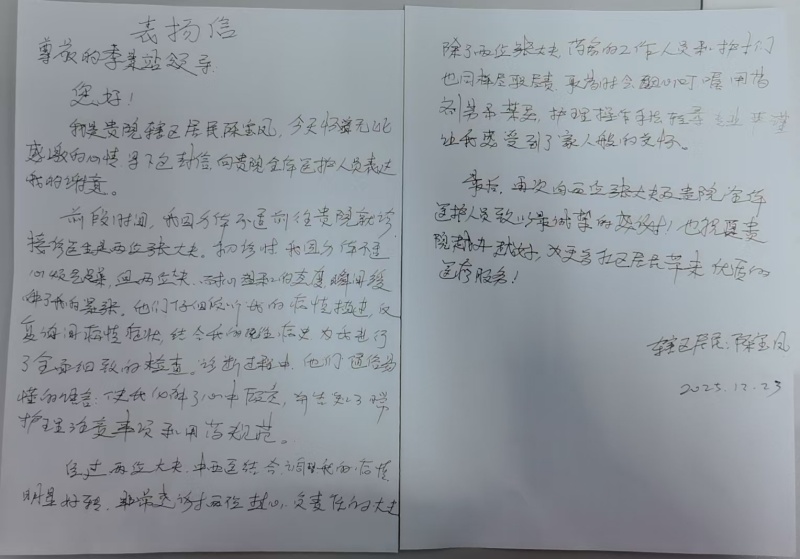 表扬信
尊敬的李集站领导
您好!
我是贵院辖区居民陈宝凤,今天怀着无比
感激的心情写下这封信,向贵院全体医护人员表达
我的谢意。
前段时间,我因身体不适前往贵院就诊
接诊医生是两位张大夫。初诊时我因身体不适
心烦,但两位大夫的态度瞬间缓
解了我的紧张。他们仔细聆听我的病情描述,反
复询问病情症状,结合我的既往病史为我进行
了全面细致的检查。诊断过程中,他们通俗易
懂的语言,使我化解了心中疑虑,
护理注意事项和用药规范。
经过两位大夫中西医结合调理我的病情
明显好转,非常感谢两位耐心、负责任的大夫
除了两位张大夫,药房的工作人员和护士们
也同样尽职尽责,取药时会耐心叮嘱用药
剂量和禁忌,护理操作手法轻柔专业严谨
让我感受到了家人般的关怀。
最后,再次向两位张大夫及贵院全体
医护人员致以最诚挚的感谢!也祝愿贵
院越办越好,为更多社区居民带来优质的
医疗服务!
辖区居民:陈宝凤
2025.12.23